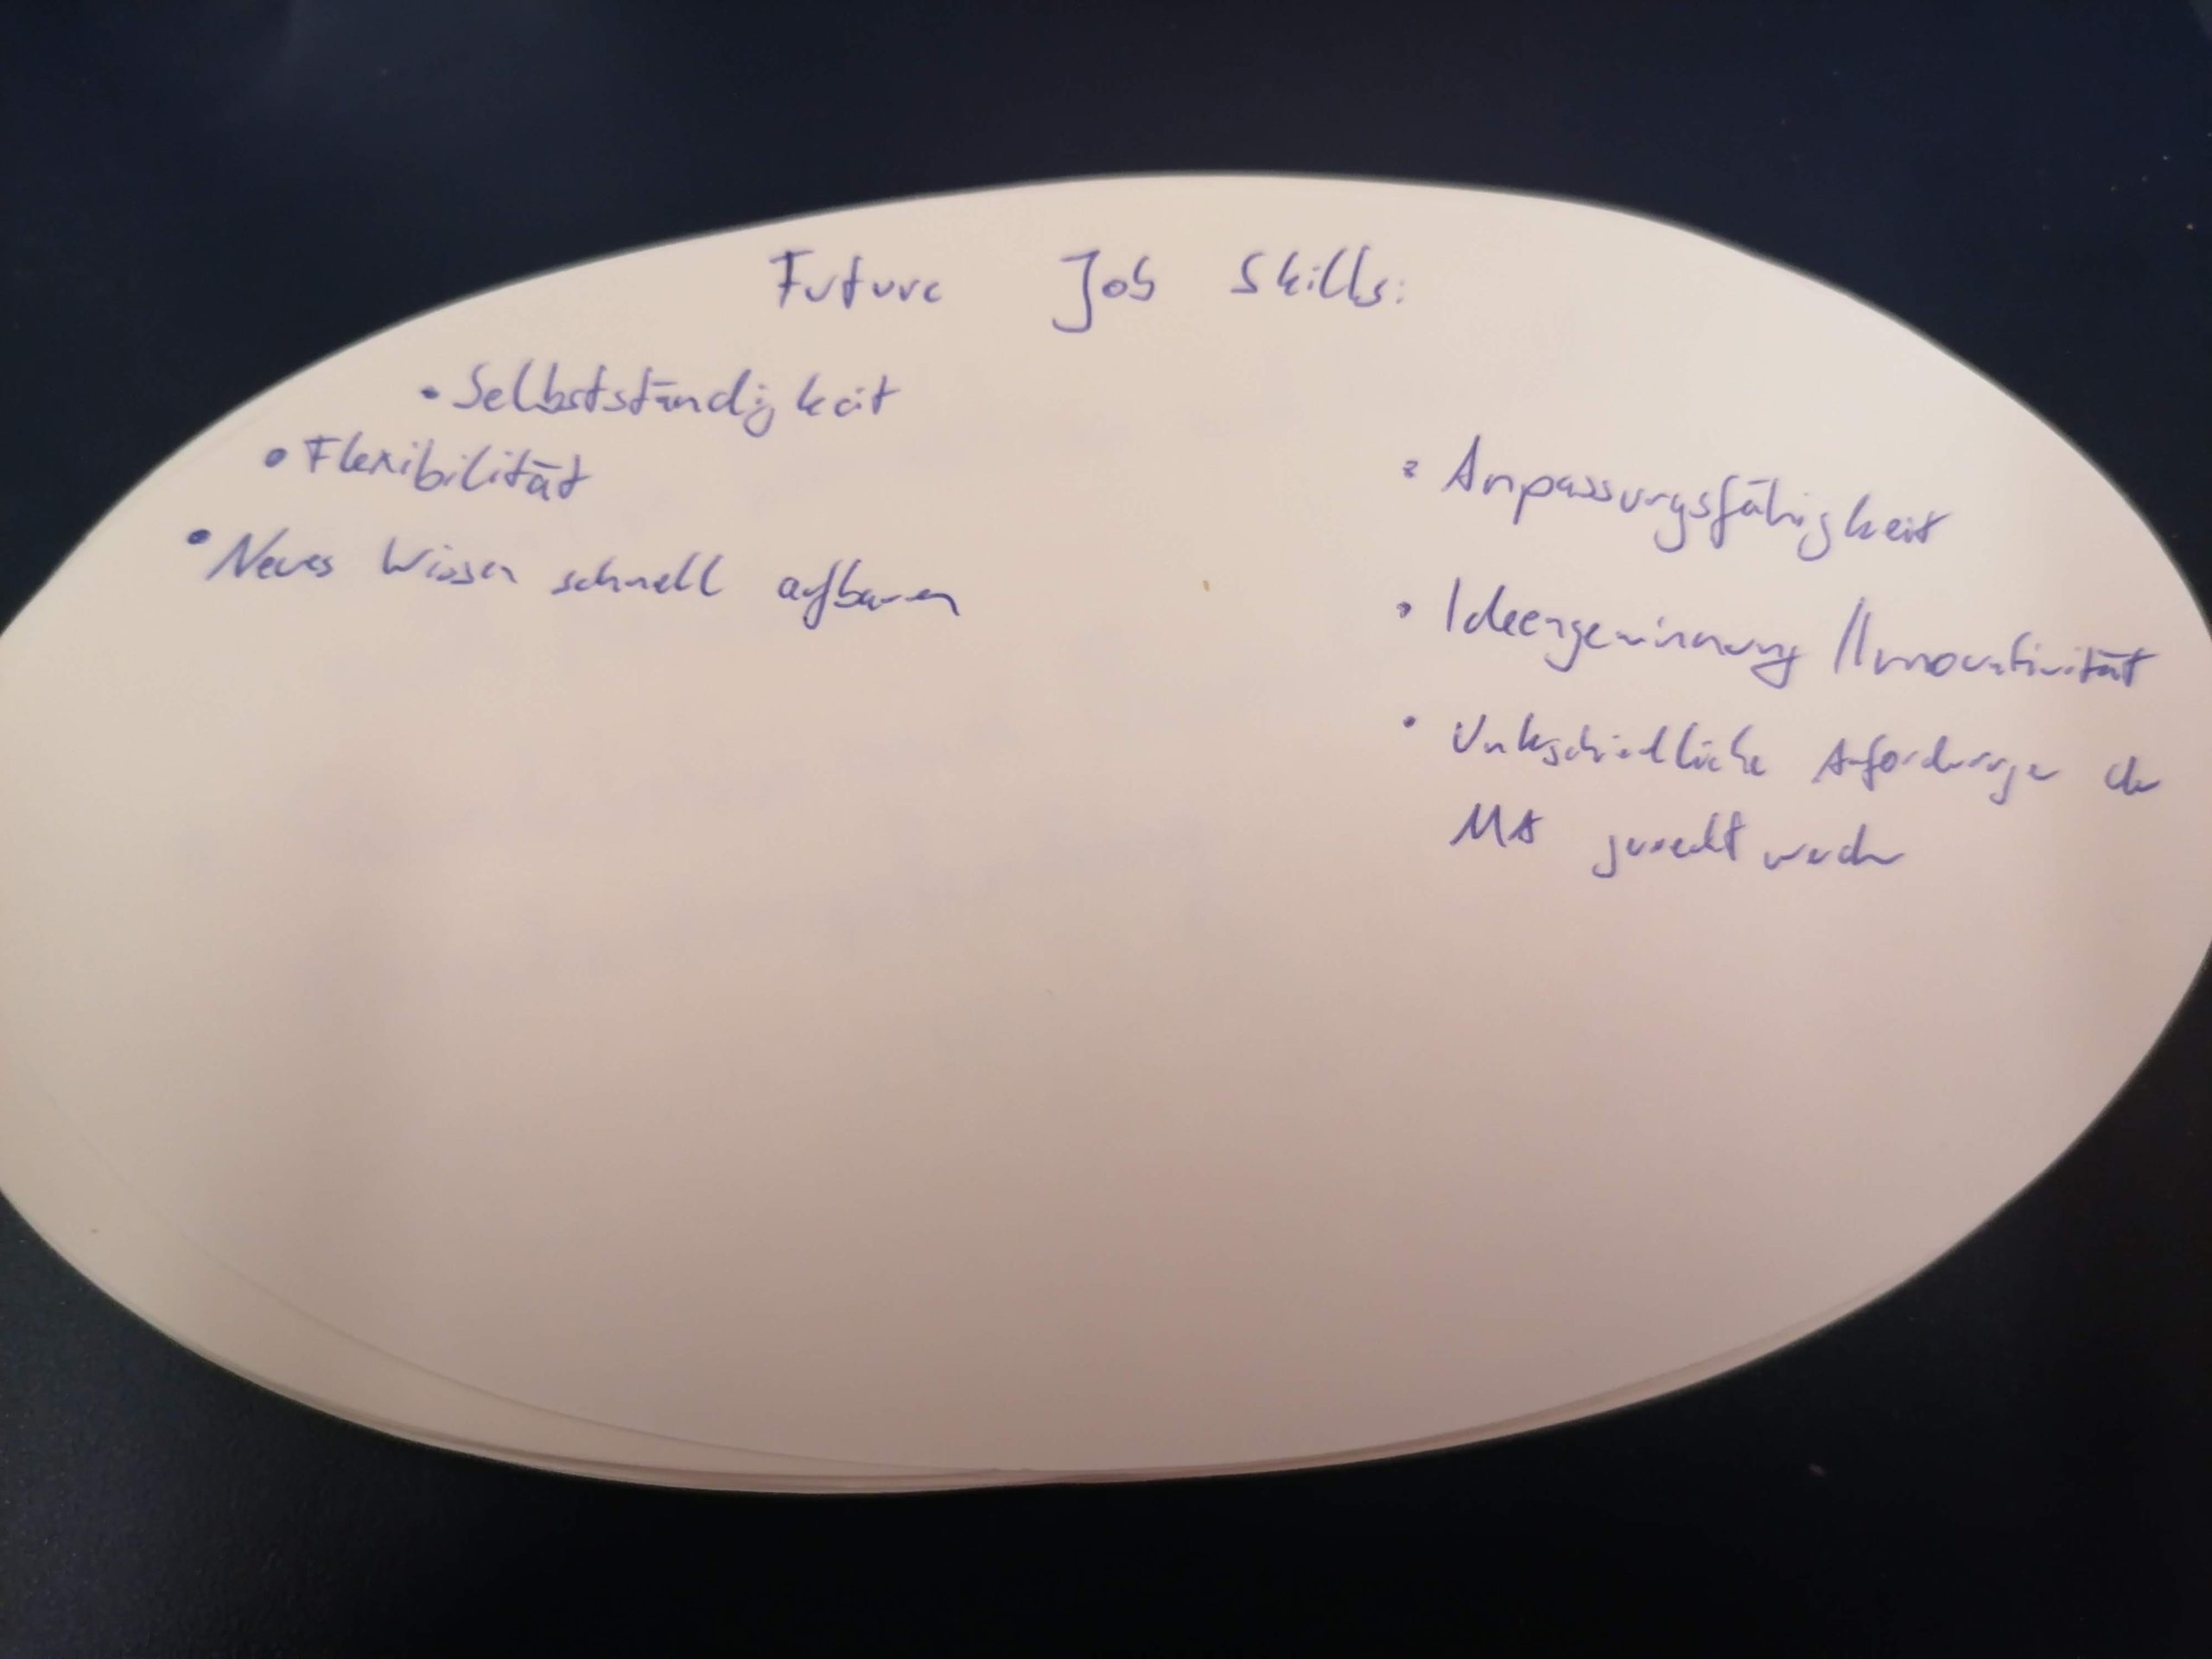 Future Job Skills:
• Selbstständigkeit
• Flexibilität
• Neues Wissen schnell aufbauen
• Anpassungsfähigkeit
• Ideengewinnung / Innovativität
• Unterschiedliche Anforderungen der
MA gerecht werden